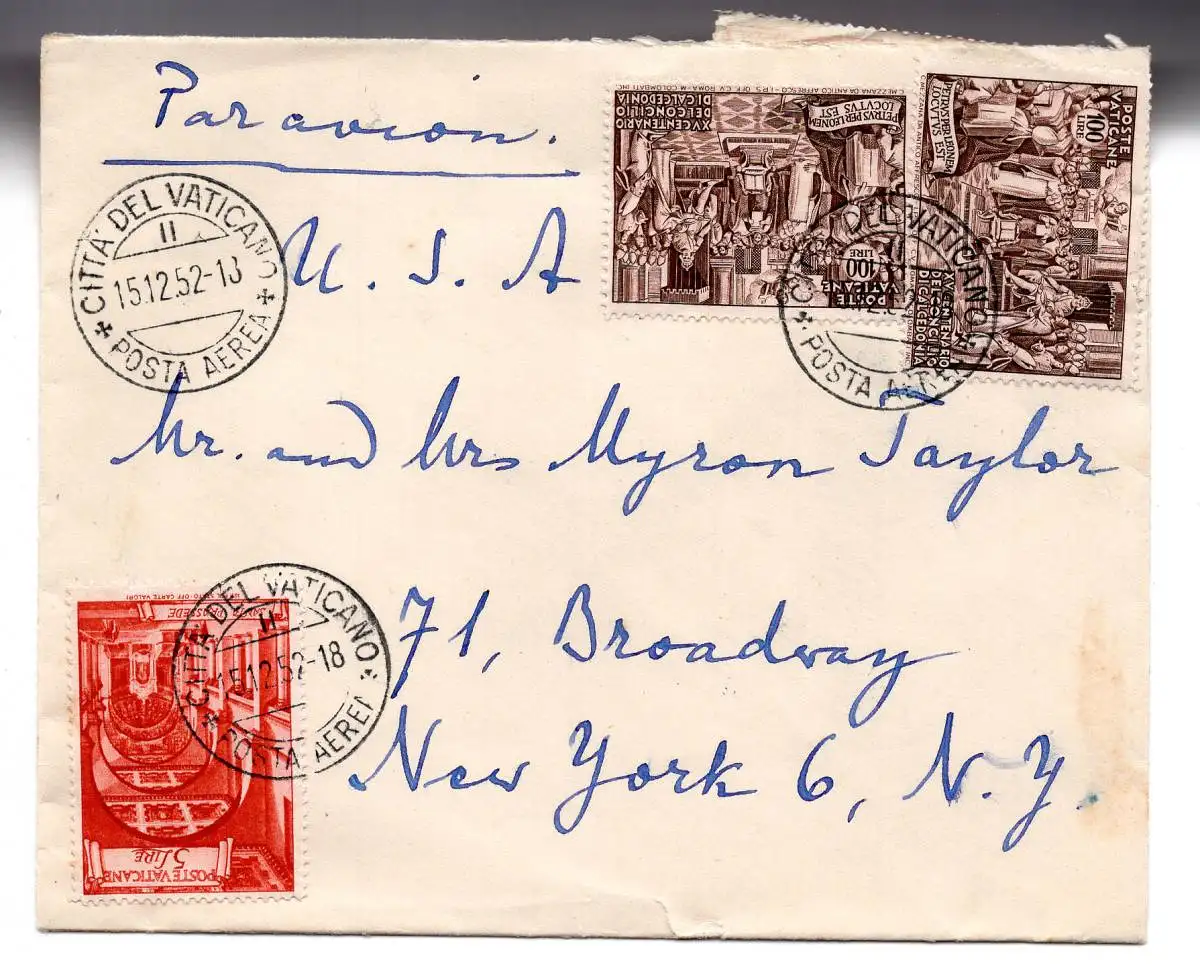 Par avion.
U. S. A
Mr. and Mrs Myron Taylor
71, Broadway
New York 6, N. Y.
CITTÀ DEL VATICANO
II
15.12.52-18
POSTA AEREA
C. MEZZANA DA ANTICO AFFRESCO - I.P.S. OFF. C.V. ROMA - M. COLOMBATI INC.
XV CENTENARIO
DEL CONCILIO
DI CALCEDONIA
PETRVS PER LEONEM
LOCVTVS
EST
100
LIRE
POSTE
VATICANE
POSTE
VATICANE
100
LIRE
PETRVS PER LEONEM
LOCVTVS
EST
XV CENTENARIO
DEL CONCILIO
DI CALCEDONIA
DEL VATICANO
II
POSTA AEREA
POSTE VATICANE
5 LIRE
PRASSEDE
OFF CARTE VALORI
CITTÀ DEL VATICANO
II
15.12.52-18
POSTA AEREA